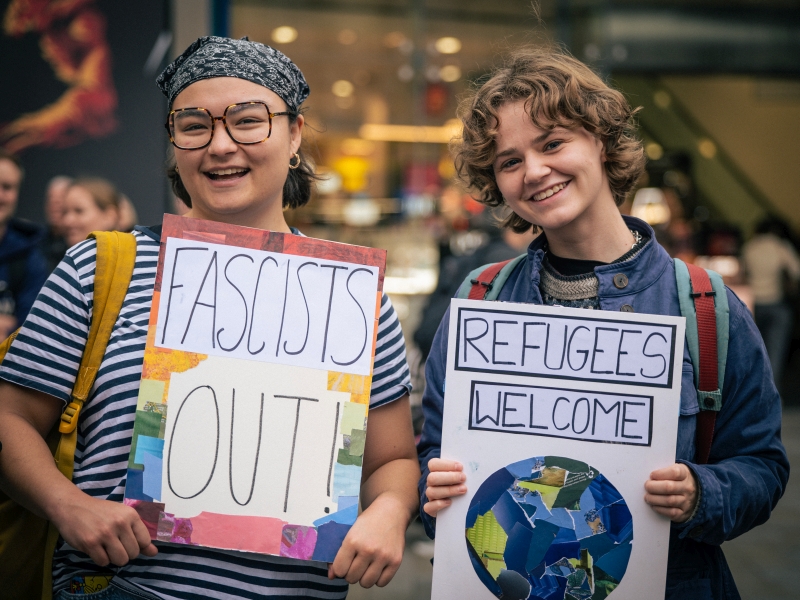 FASCISTS
OUT!
REFUGEES
WELCOME